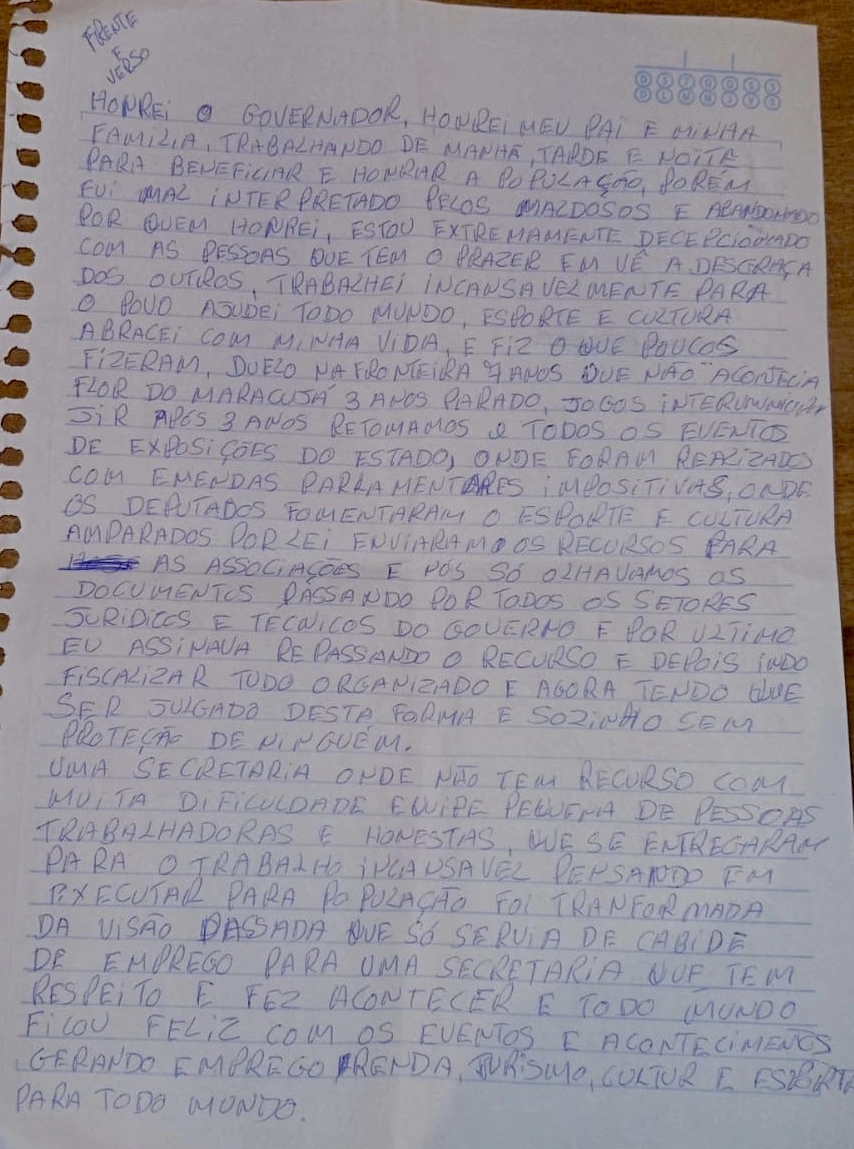 FRENTE
E
VERSO
D S T Q Q S S
D L M M J V S
HONREI O GOVERNADOR, HONREI MEU PAI E MINHA
FAMILIA, TRABALHANDO DE MANHÃ, TARDE E NOITE
PARA BENEFICIAR E HONRAR A POPULAÇÃO, PORÉM
FUI MAL INTERPRETADO PELOS MALDOSOS E ABANDONADO
POR QUEM HONREI, ESTOU EXTREMAMENTE DECEPCIONADO
COM AS PESSOAS QUE TEM O PRAZER EM VÊ A DESGRAÇA
DOS OUTROS, TRABALHEI INCANSAVELMENTE PARA
O POVO AJUDEI TODO MUNDO, ESPORTE E CULTURA
ABRACEI COM MINHA VIDA, E FIZ O QUE POUCOS
FIZERAM, DUELO NA FRONTEIRA 7 ANOS QUE NÃO ACONTECIA
FLOR DO MARACUJÁ 3 ANOS PARADO, JOGOS
JIR APÓS 3 ANOS RETOMAMOS E TODOS OS EVENTOS
DE EXPOSIÇÕES DO ESTADO, ONDE FORAM REALIZADOS
COM EMENDAS PARLAMENTARES IMPOSITIVAS, ONDE
OS DEPUTADOS FOMENTARAM O ESPORTE E CULTURA
AMPARADOS POR LEI ENVIARAM OS RECURSOS PARA
AS ASSOCIAÇÕES E NÓS SÓ OLHAVAMOS OS
DOCUMENTOS PASSANDO POR TODOS OS SETORES
JURIDICOS E TÉCNICOS DO GOVERNO E POR ULTIMO
EU ASSINAVA REPASSANDO O RECURSO E DEPOIS INDO
FISCALIZAR TUDO ORGANIZADO E AGORA TENDO QUE
SER JULGADO DESTA FORMA E SOZINHO SEM
PROTEÇÃO DE NINGUÉM.
UMA SECRETARIA ONDE NÃO TEM RECURSO COM
MUITA DIFICULDADE EQUIPE PEQUENA DE PESSOAS
TRABALHADORAS E HONESTAS, QUE SE ENTREGARAM
PARA O TRABALHO INCANSAVEL PENSANDO EM
EXECUTAR PARA POPULAÇÃO FOI TRANFORMADA
DA VISÃO PASSADA QUE SÓ SERVIA DE CABIDE
DE EMPREGO PARA UMA SECRETARIA QUE TEM
RESPEITO E FEZ ACONTECER E TODO MUNDO
FICOU FELIZ COM OS EVENTOS E ACONTECIMENTOS
GERANDO EMPREGO RENDA, TURISMO, CULTUR E ESPORTE
PARA TODO MUNDO.